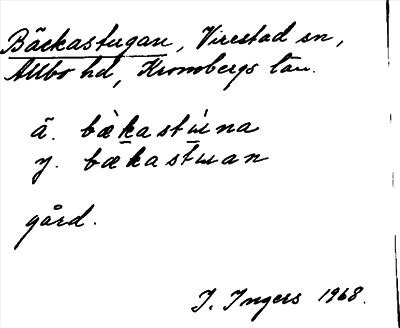 Bäckastugan, Virestad sn,
Allbo hd, Kronobergs län.
ä. bè̱kastú̱na
y. bæ̱kastu̱an
gård.
I. Ingers 1968.